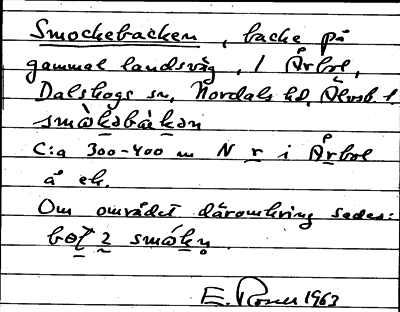 Smockebacken, backe på
gammal landsväg, i Årbol,
Dalskogs sn, Nordals hd, Älvsb. l.
smòkəbàkən
C:a 300-400 m N r i Årbol
å ek.
Om området däromkring sades:
smókn
E. Rosell 1963